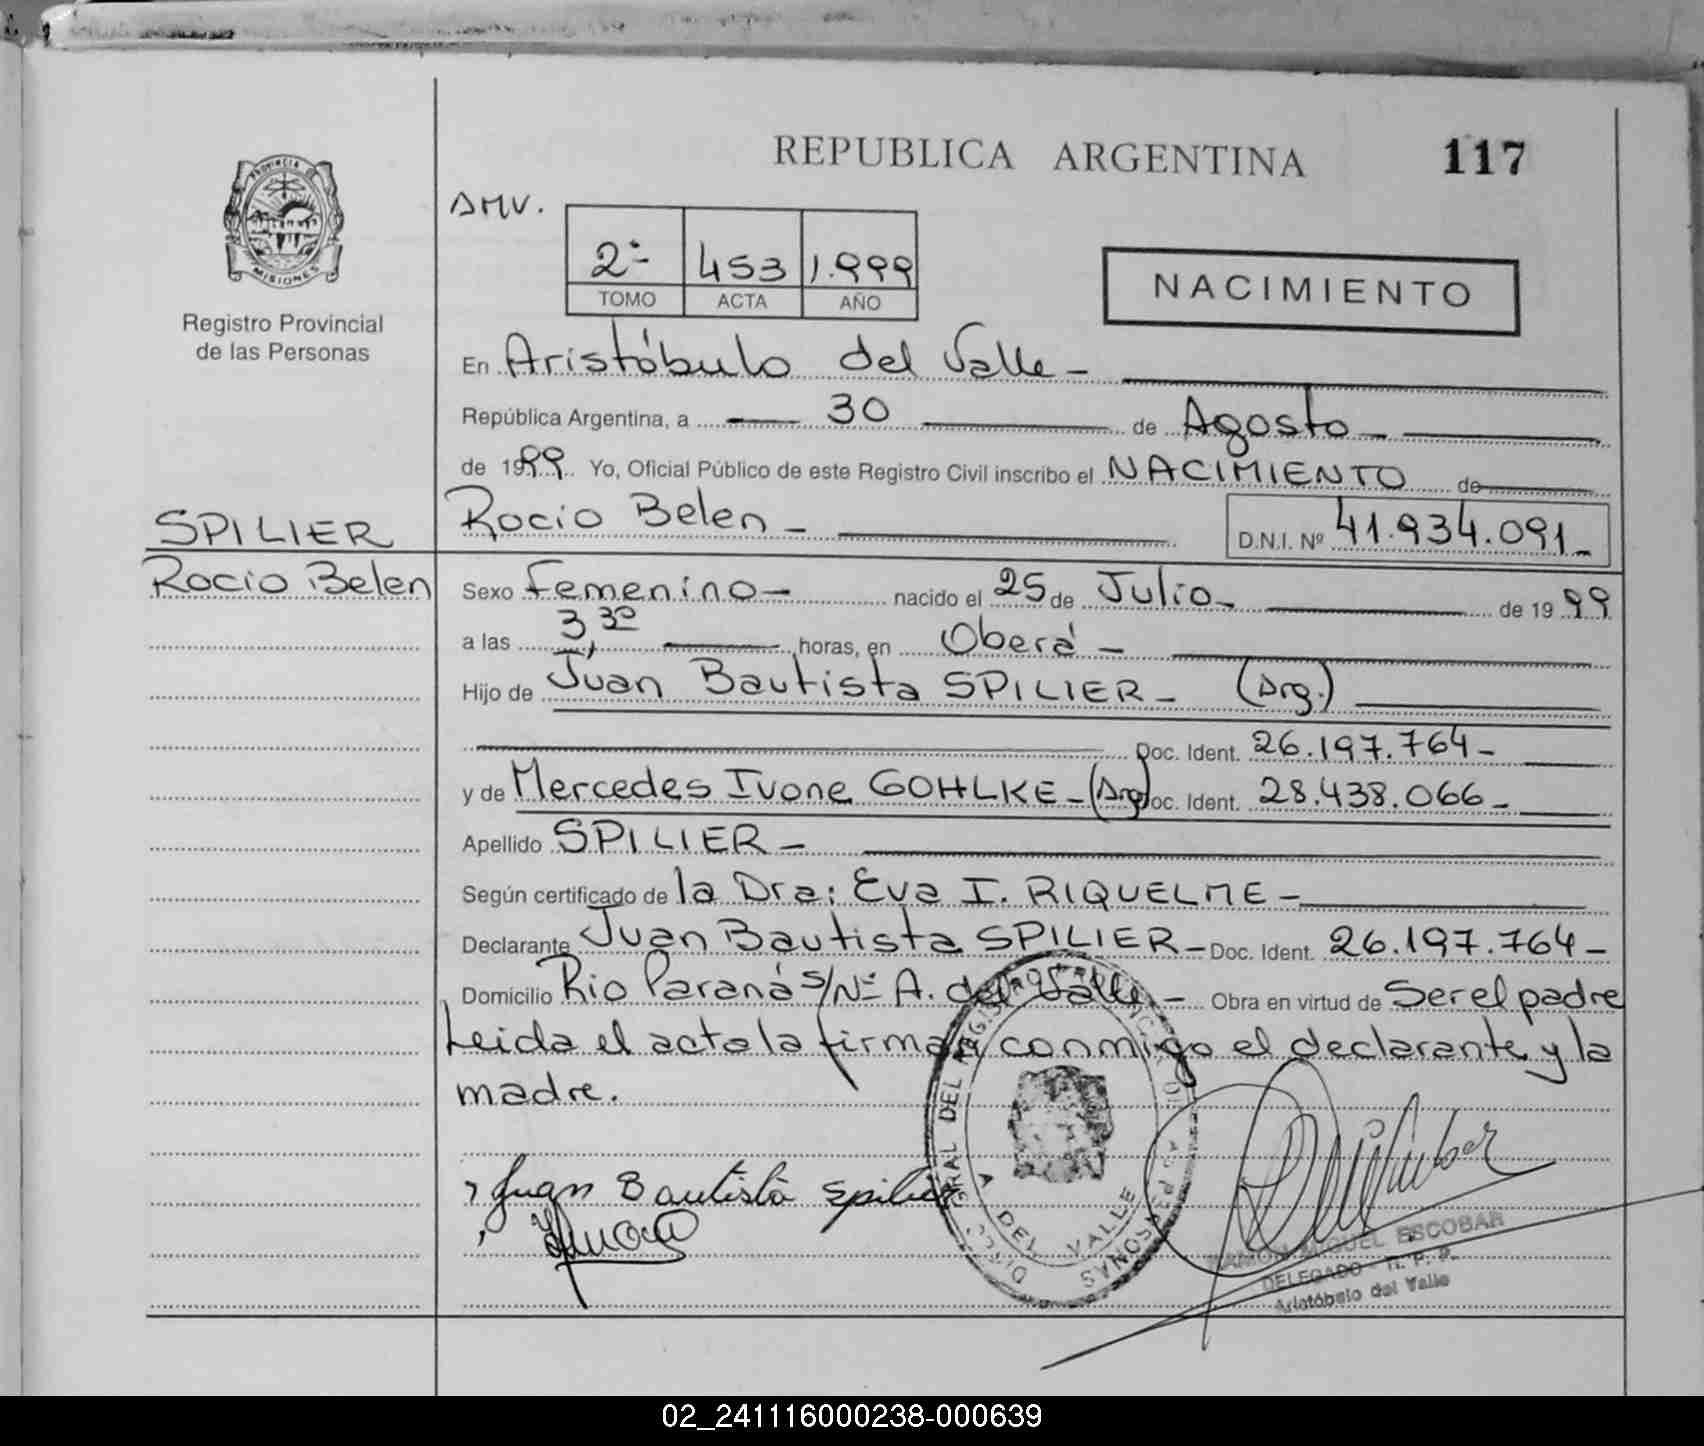 REPUBLICA ARGENTINA 117
PROVINCIA DE
MISIONES
Registro Provincial
de las Personas
AMV.
2º 453 1.999
TOMO ACTA AÑO
NACIMIENTO
En Aristóbulo del Valle -
República Argentina, a 30 de Agosto -
de 1999 Yo, Oficial Público de este Registro Civil inscribo el NACIMIENTO de
SPILIER
Rocio Belen
Rocio Belen - D.N.I. Nº 41.934.091 -
Sexo Femenino - nacido el 25 de Julio - de 1999
a las 3,30 horas, en Oberá -
Hijo de Juan Bautista SPILIER - (Arg.)
Doc. Ident. 26.197.764 -
y de Mercedes Ivone GOHLKE - (Arg) Doc. Ident. 28.438.066 -
Apellido SPILIER -
Según certificado de la Dra: Eva I. RIQUELME -
Declarante Juan Bautista SPILIER - Doc. Ident. 26.197.764 -
Domicilio Rio Paraná s/Nº A. del Valle - Obra en virtud de Ser el padre
Leida el acta la firman conmigo el declarante y la
madre.
Juan Bautista Spilier
A. DEL VALLE
RAMON MIGUEL ESCOBAR
DELEGADO - R. P. P.
Aristóbulo del Valle
02_241116000238-000639